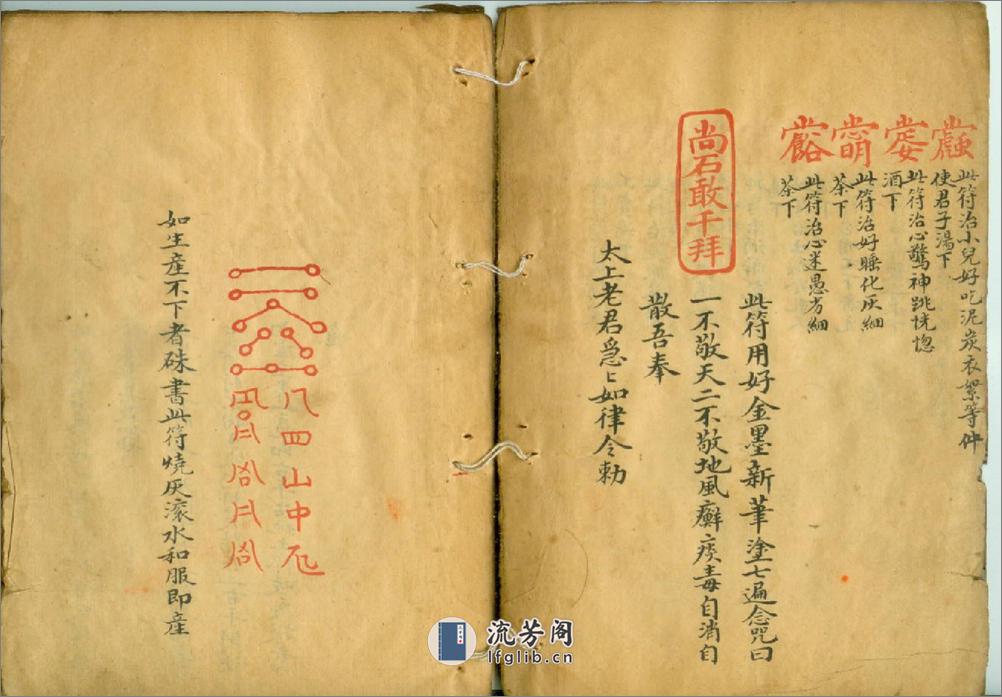 此符治小兒好吃泥炭衣絮等件
使君子湯下
此符治心驚神跳恍惚
酒下
此符治好睡化灰細
茶下
此符治心迷愚方細
茶下
此符用好金墨新筆塗七遍念咒曰
尚石敢千拜
一不敬天二不敬地風癬痰毒自消自
散吾奉
太上老君急〻如律令勅
八四山中
如生產不下者硃書此符燒灰滚水和服即產
流芳阁
lfglib.cn